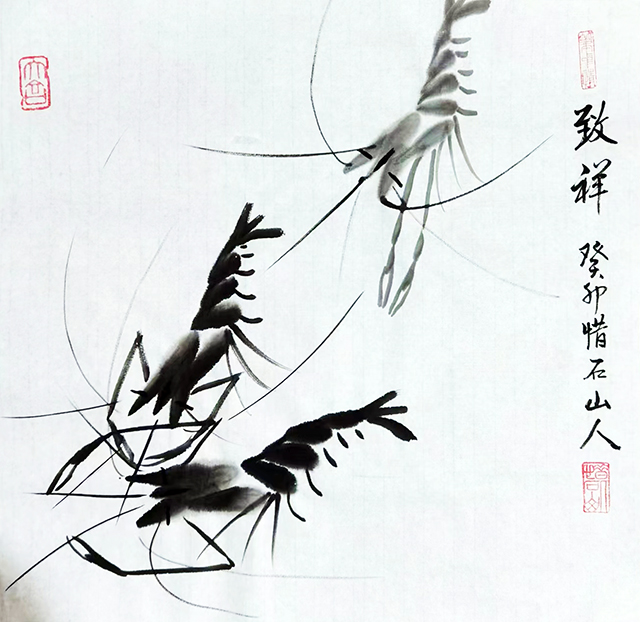 致祥
癸卯惜石山人